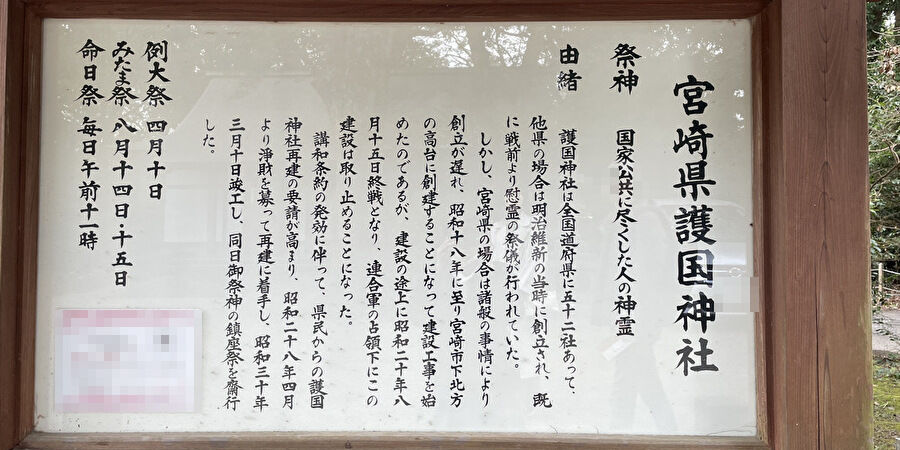 宮崎県護国神社
祭神 国家公共に尽くした人の神霊
由緒
護国神社は全国道府県に五十二社あって、
他県の場合は明治維新の当時に創立され、既
に戦前より慰霊の祭儀が行われていた。
しかし、宮崎県の場合は諸般の事情により
創立が遅れ、昭和十八年に至り宮崎市下北方
の高台に創建することになって建設工事を始
めたのであるが、建設の途上に昭和二十年八
月十五日終戦となり、連合軍の占領下にこの
建設は取り止めることになった。
講和条約の発効に伴って、県民からの護国
神社再建の要請が高まり、昭和二十八年四月
より浄財を募って再建に着手し、昭和三十年
三月十日竣工し、同日御祭神の鎮座祭を齋行
した。
例大祭 四月十日
みたま祭 八月十四日・十五日
命日祭 毎日午前十一時